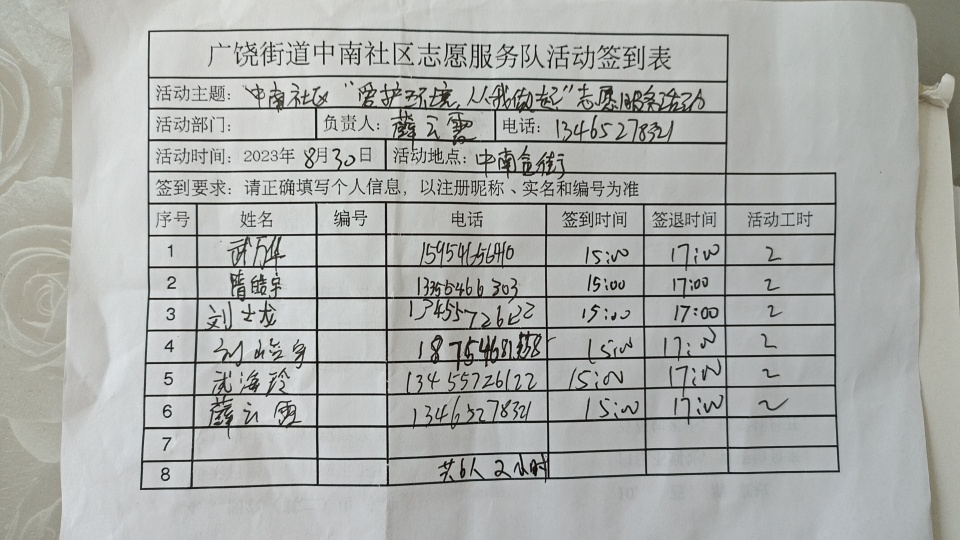 广饶街道中南社区志愿服务队活动签到表
活动主题：中南社区“爱护环境，从我做起”志愿服务活动
活动部门： 负责人：薛云霞 电话：13465278321
活动时间：2023年 8月30日 活动地点：中南金街
签到要求：请正确填写个人信息，以注册昵称、实名和编号为准
序号 姓名 编号 电话 签到时间 签退时间 活动工时
1 武万华 15954656410 15:00 17:00 2
2 隋皓宇 13355466303 15:00 17:00 2
3 刘士龙 13455726122 15:00 17:00 2
4 刘皓宇 15:00 17:00 2
5 武海玲 13455726122 15:00 17:00 2
6 薛云霞 13465278321 15:00 17:00 2
7
8 共6人 2小时